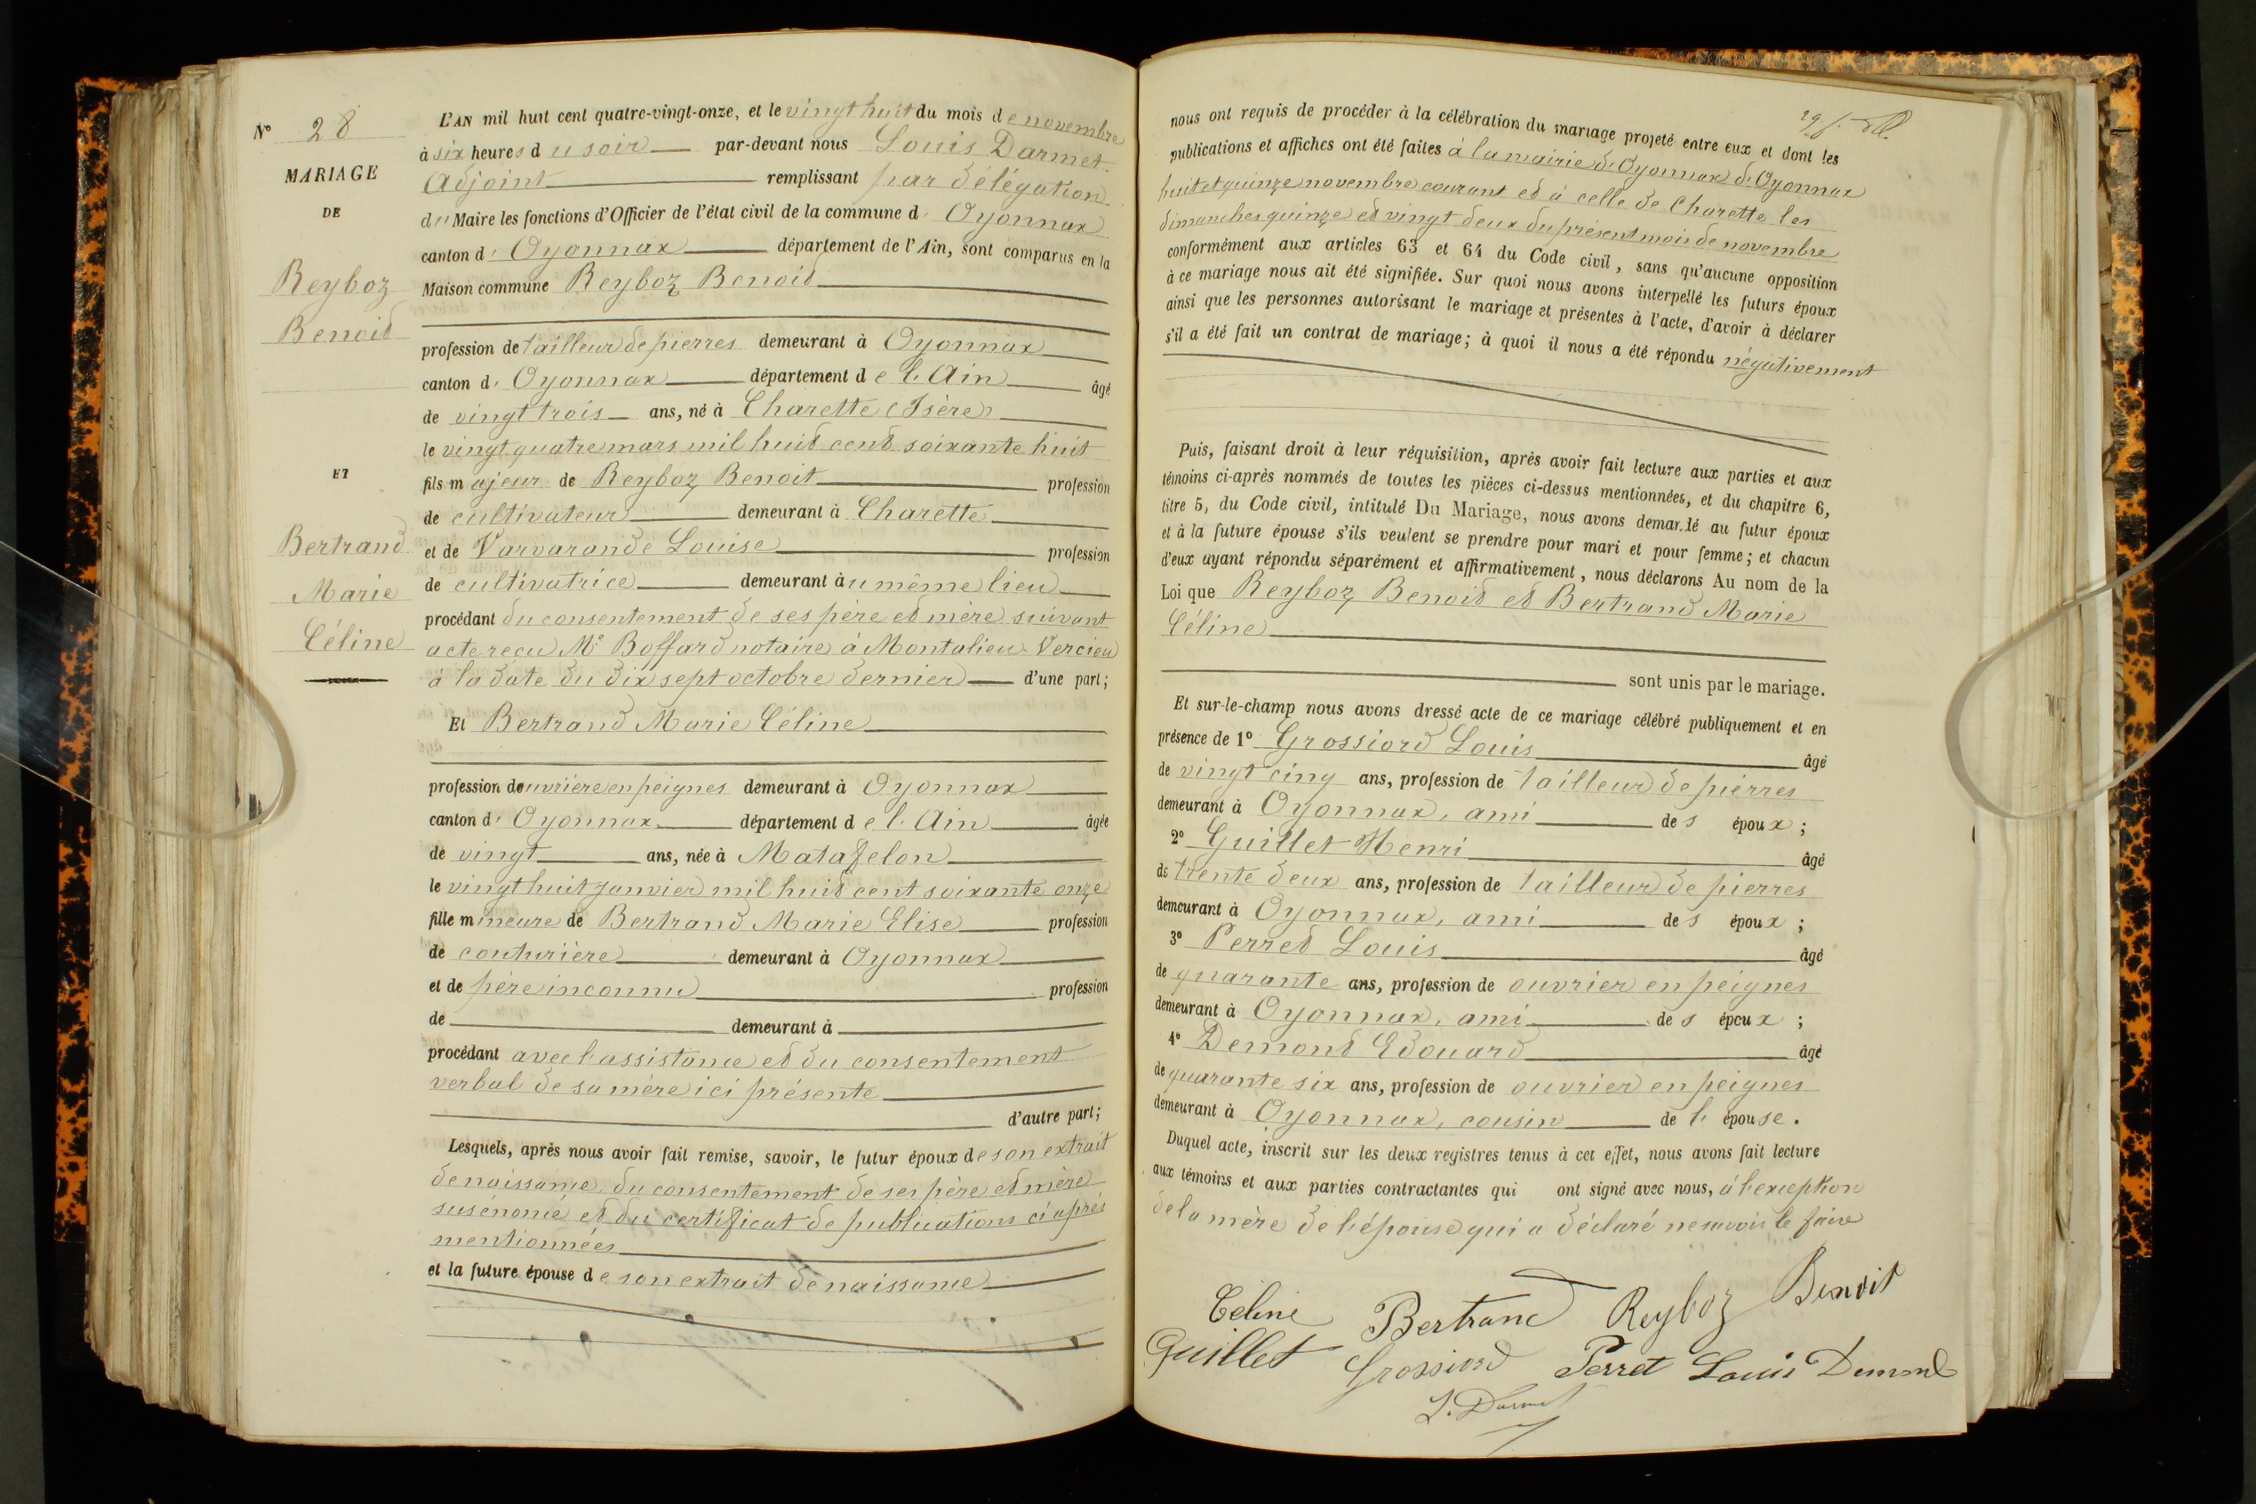 N° 28
MARIAGE
DE
Reyboz
Benoit
ET
Bertrand
Marie
Céline
L'AN mil huit cent quatre-vingt-onze, et le vingt huit du mois de novembre
à six heures du soir par-devant nous Louis Darmet
Adjoint remplissant par délégation
du Maire les fonctions d'Officier de l'état civil de la commune d' Oyonnax
canton d' Oyonnax département de l'Ain, sont comparus en la
Maison commune Reyboz Benoit
profession de tailleur de pierres demeurant à Oyonnax
canton d' Oyonnax département de l'Ain âgé
de vingt trois ans, né à Charette (Isère)
le vingt quatre mars mil huit cent soixante huit
fils majeur de Reyboz Benoit profession
de cultivateur demeurant à Charette
et de Varvarande Louise profession
de cultivatrice demeurant au même lieu
procédant du consentement de ses père et mère suivant
acte reçu Me Boffard notaire à Montalieu Vercieu
à la date du dix sept octobre dernier d'une part;
Et Bertrand Marie Céline
profession d'ouvrière en peignes demeurant à Oyonnax
canton d' Oyonnax département de l'Ain âgée
de vingt ans, née à Matafelon
le vingt huit janvier mil huit cent soixante onze
fille mineure de Bertrand Marie Elise profession
de couturière demeurant à Oyonnax
et de père inconnu profession
de demeurant à
procédant avec l'assistance et du consentement
verbal de sa mère ici présente
d'autre part;
Lesquels, après nous avoir fait remise, savoir, le futur époux de son extrait
de naissance, du consentement de ses père et mère
susénoncé et du certificat de publications ci après
mentionnées
et la future épouse de son extrait de naissance
nous ont requis de procéder à la célébration du mariage projeté entre eux et dont les
publications et affiches ont été faites à la mairie d'Oyonnax d'Oyonnax
huit et quinze novembre courant et à celle de Charette les
dimanches quinze et vingt deux du présent mois de novembre
conformément aux articles 63 et 64 du Code civil, sans qu'aucune opposition
à ce mariage nous ait été signifiée. Sur quoi nous avons interpellé les futurs époux
ainsi que les personnes autorisant le mariage et présentes à l'acte, d'avoir à déclarer
s'il a été fait un contrat de mariage; à quoi il nous a été répondu négativement
Puis, faisant droit à leur réquisition, après avoir fait lecture aux parties et aux
témoins ci-après nommés de toutes les pièces ci-dessus mentionnées, et du chapitre 6,
titre 5, du Code civil, intitulé Du Mariage, nous avons demandé au futur époux
et à la future épouse s'ils veulent se prendre pour mari et pour femme; et chacun
d'eux ayant répondu séparément et affirmativement, nous déclarons Au nom de la
Loi que Reyboz Benoit et Bertrand Marie
Céline
sont unis par le mariage.
Et sur-le-champ nous avons dressé acte de ce mariage célébré publiquement et en
présence de 1° Grossiord Louis âgé
de vingt cinq ans, profession de tailleur de pierres
demeurant à Oyonnax, ami des époux;
2° Guillet Henri âgé
de trente deux ans, profession de tailleur de pierres
demeurant à Oyonnax, ami des époux;
3° Perret Louis âgé
de quarante ans, profession de ouvrier en peignes
demeurant à Oyonnax, ami des époux;
4° Demont Edouard âgé
de quarante six ans, profession de ouvrier en peignes
demeurant à Oyonnax, cousin de l'épouse.
Duquel acte, inscrit sur les deux registres tenus à cet effet, nous avons fait lecture
aux témoins et aux parties contractantes qui ont signé avec nous, à l'exception
de la mère de l'épouse qui a déclaré ne savoir le faire
Céline Bertrand Reyboz Benoit
Guillet Grossiord Perret Louis Demont
L. Darmet